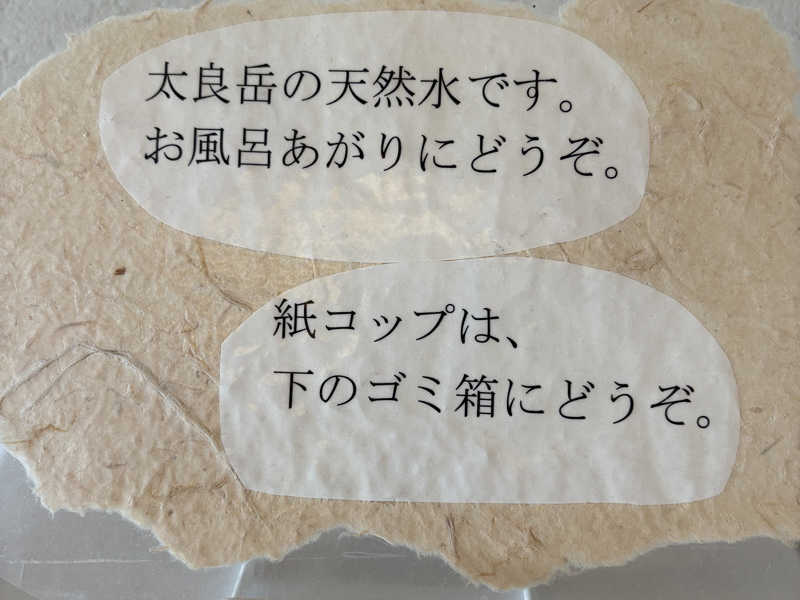 太良岳の天然水です。
お風呂あがりにどうぞ。
紙コップは、
下のゴミ箱にどうぞ。